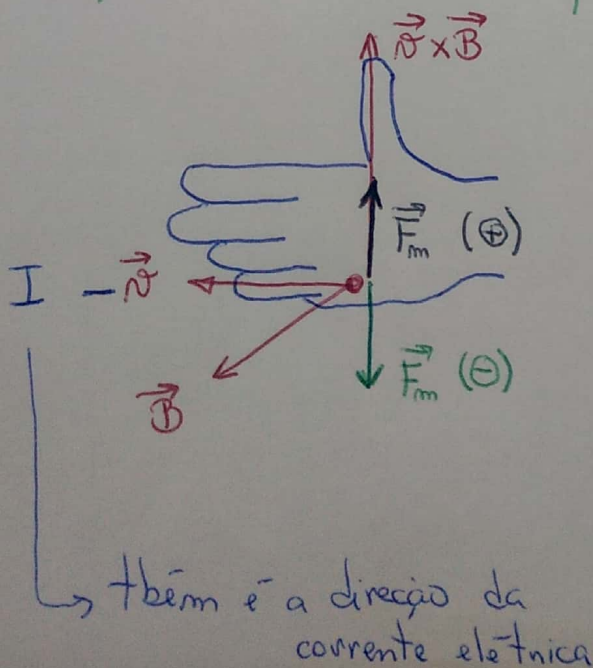 v⃗ x B⃗
F⃗m (⊕)
I – v⃗
B⃗
F⃗m (⊖)
tbém é a direção da
corrente elétrica